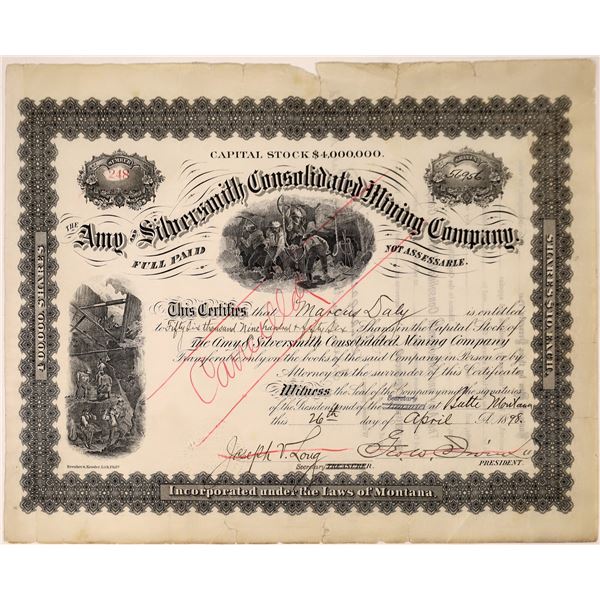 CAPITAL STOCK $4,000,000.
NUMBER
248
SHARES
56956
THE Amy and Silversmith Consolidated Mining Company,
FULL PAID
NOT ASSESSABLE.
400,000 SHARES
Cancelled
This Certifies that Marcus Daly is entitled
to Fifty Six thousand Nine hundred & Fifty Six Shares in the Capital Stock of
The Amy & Silversmith Consolidated Mining Company
Transferable only on the books of the said Company in Person or by
Attorney on the surrender of this Certificate
Witness the Seal of the Company and the signatures
Secretary
of the President and of the Treasurer at Butte Montana
this 26th day of April A.D. 1898.
Joseph V. Long
Secretary TREASURER.
PRESIDENT.
Incorporated under the Laws of Montana.